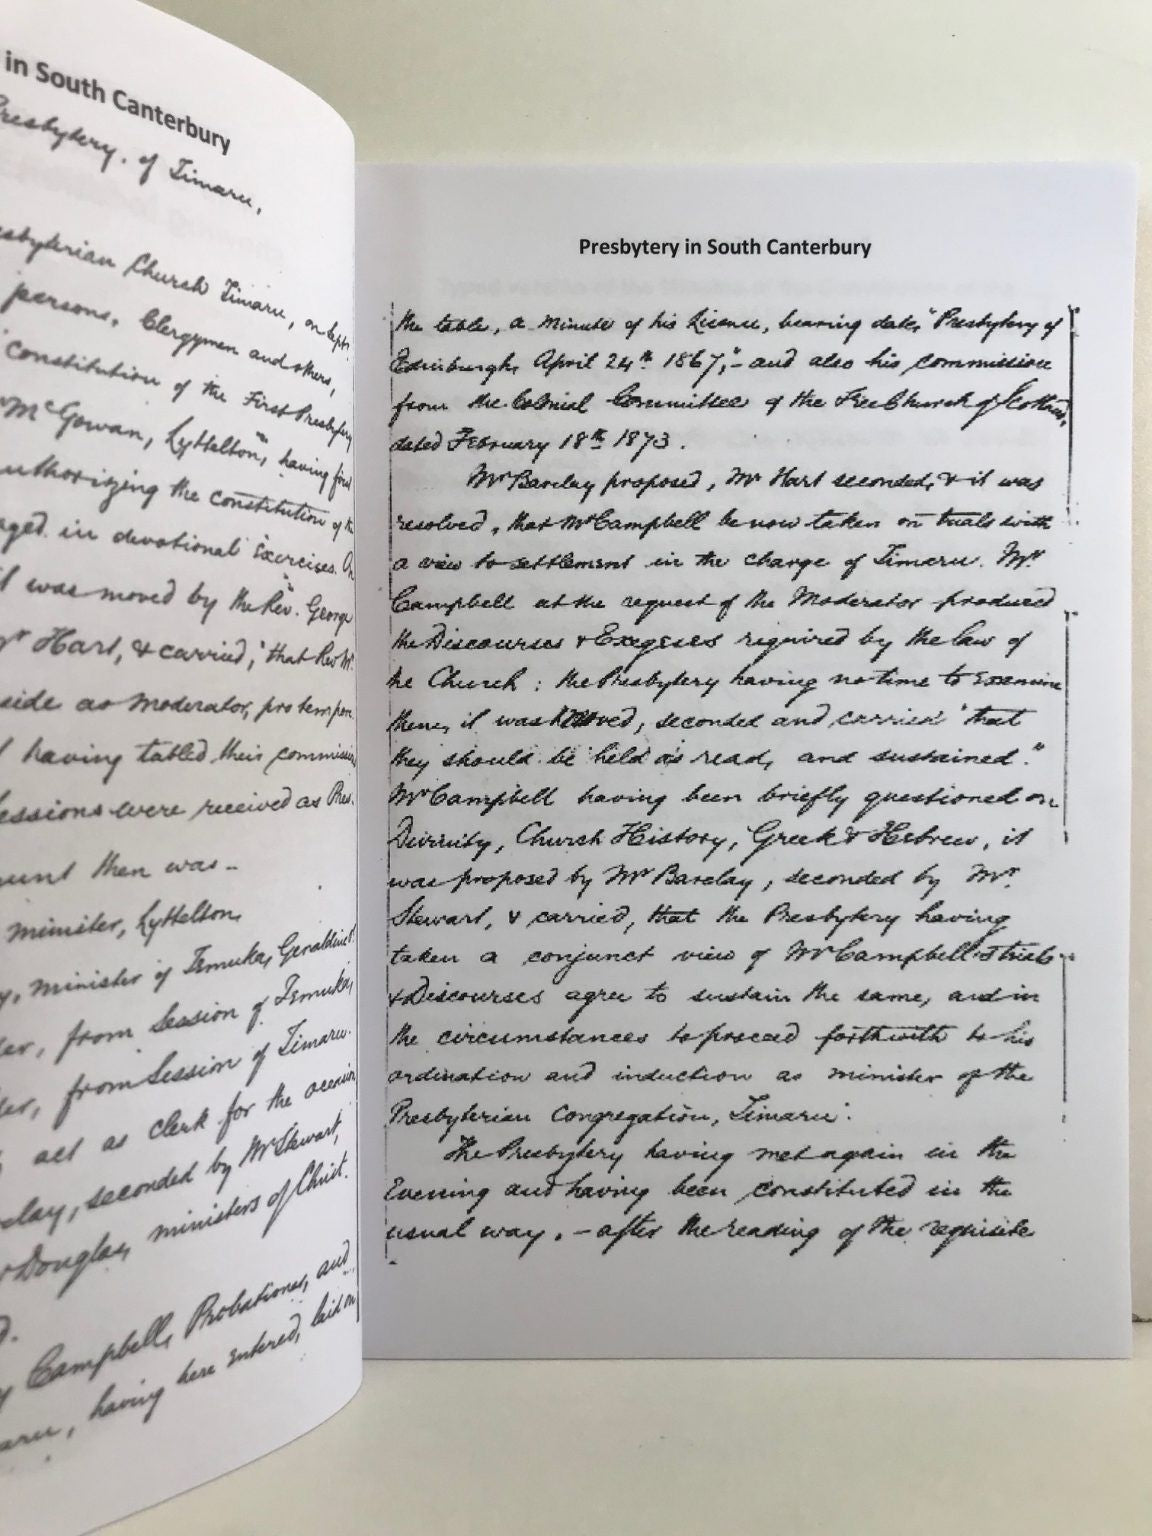 in South Canterbury
Presbytery of Timaru,
Church Timaru, on Sept.
persons, Clergymen and others,
constitution of the First Presbytery
McGowan, Lyttelton, having first
authorizing the constitution of the
in devotional Exercises. On
was moved by the Rev. George
Mr Hart, & carried, "that Rev Mr.
side as Moderator, pro tempore
having tabled their commissions
essions were received as Pres.
then was -
minister, Lyttelton
minister of Temuka, Geraldine &c.
from Session of Temuka,
from Session of Timaru.
act as Clerk for the occasion
seconded by Mr Stewart,
Douglas, ministers of Christ.
Campbell, Probationer, and
having here entered, laid on
Presbytery in South Canterbury
the table, a minute of his Licence, bearing date, "Presbytery of
Edinburgh, April 24th 1867," - and also his commission
from the Colonial Committee of the Free Church of Scotland,
dated February 18th 1873.
Mr Barclay proposed, Mr Hart seconded, & it was
resolved, that Mr Campbell be now taken on trials with
a view to settlement in the charge of Timaru. Mr
Campbell at the request of the Moderator produced
the Discourses & Exegeses required by the law of
he Church: the Presbytery having no time to Examine
them, it was moved, seconded and carried "that
they should be held as read, and sustained."
Mr Campbell having been briefly questioned on
Divinity, Church History, Greek & Hebrew, it
was proposed by Mr Barclay, seconded by Mr.
Stewart, & carried, that the Presbytery having
taken a conjunct view of Mr Campbell's trials
& Discourses agree to sustain the same, and in
the circumstances to proceed forthwith to his
ordination and induction as minister of the
Presbyterian Congregation, Timaru.
The Presbytery having met again in the
Evening and having been constituted in the
usual way. - after the reading of the requisite